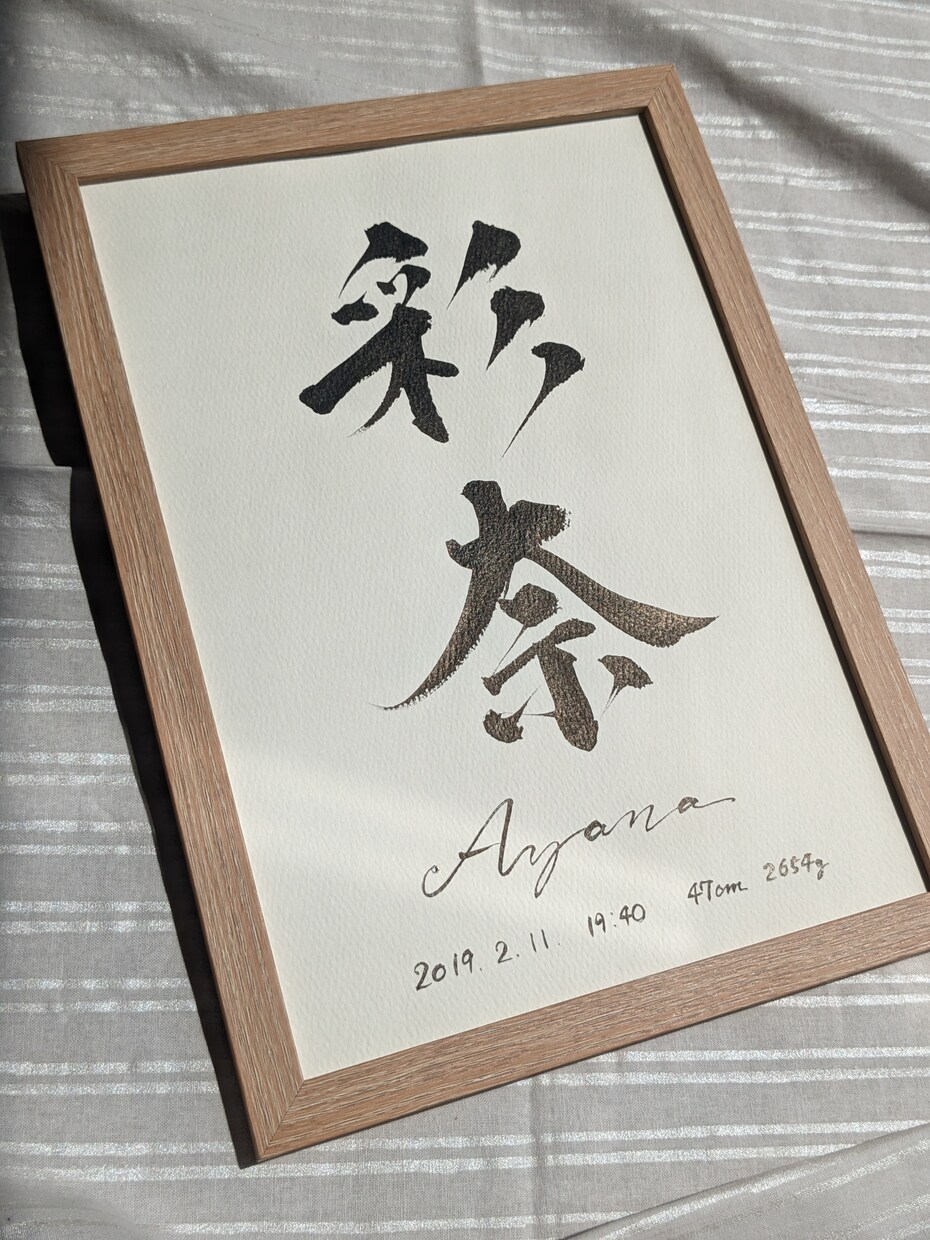 彩
奈
Ayana
2019. 2. 11. 19:40 47cm 2654g